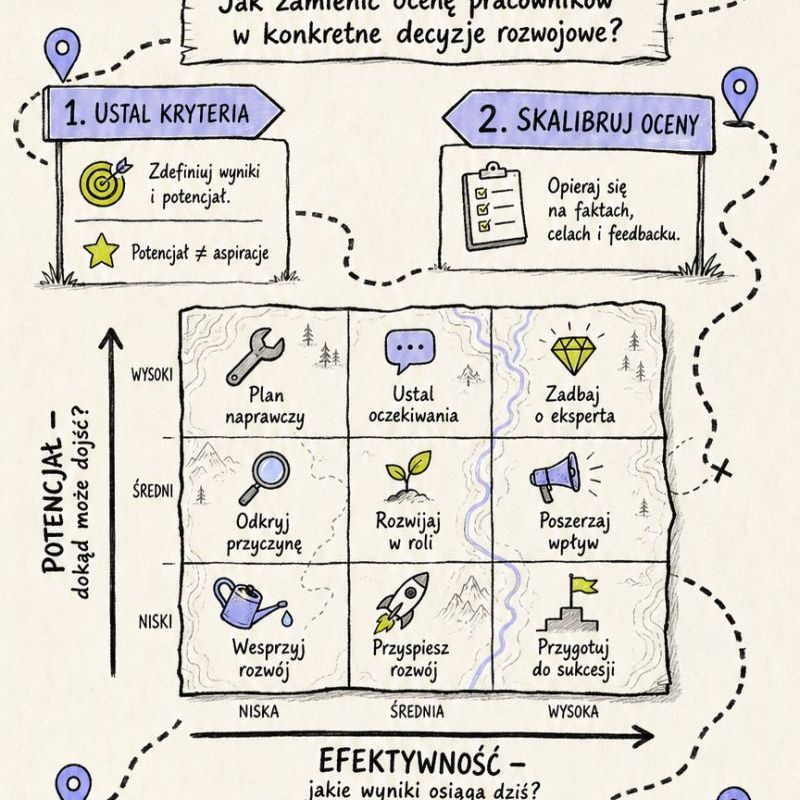 Jak zamienić ocenę pracowników
w konkretne decyzje rozwojowe?
1. USTAL KRYTERIA
Zdefiniuj wyniki
i potencjał.
Potencjał ≠ aspiracje
2. SKALIBRUJ OCENY
Opieraj się
na faktach,
celach i feedbacku.
POTENCJAŁ –
dokąd może dojść?
WYSOKI
Plan
naprawczy
Ustal
oczekiwania
Zadbaj
o eksperta
ŚREDNI
Odkryj
przyczynę
Rozwijaj
w roli
Poszerzaj
wpływ
NISKI
Wesprzyj
rozwój
Przyspiesz
rozwój
Przygotuj
do sukcesji
NISKA
ŚREDNIA
WYSOKA
EFEKTYWNOŚĆ –
jakie wyniki osiąga dziś?